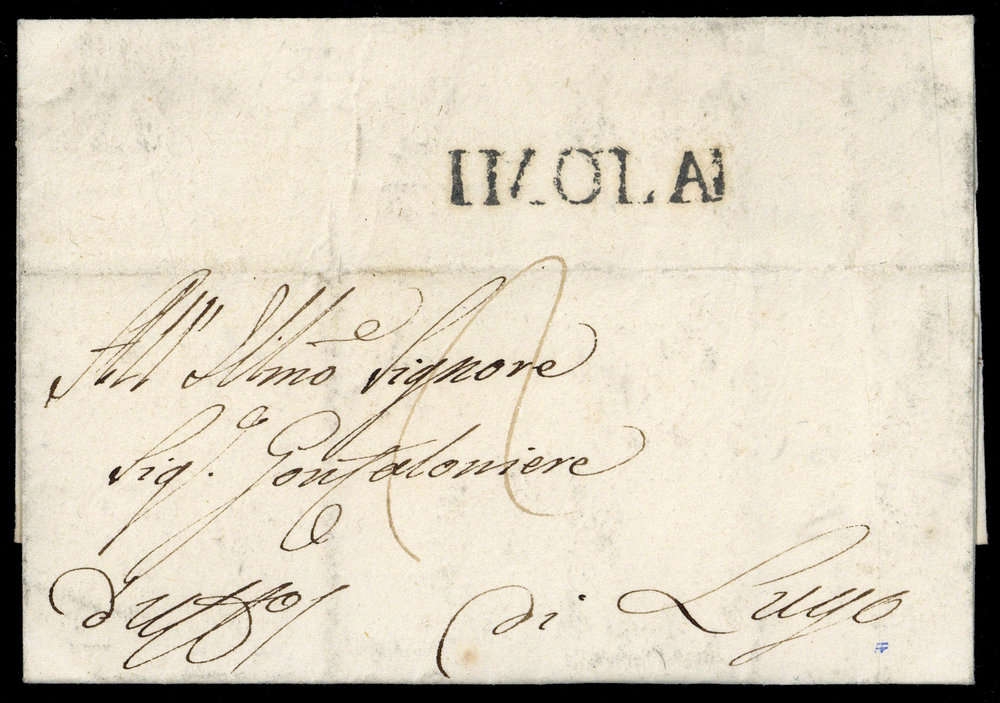 IMOLA
All' Illmo Signore
Sig.r Gonfaloniere
d'uffo
di Lugo